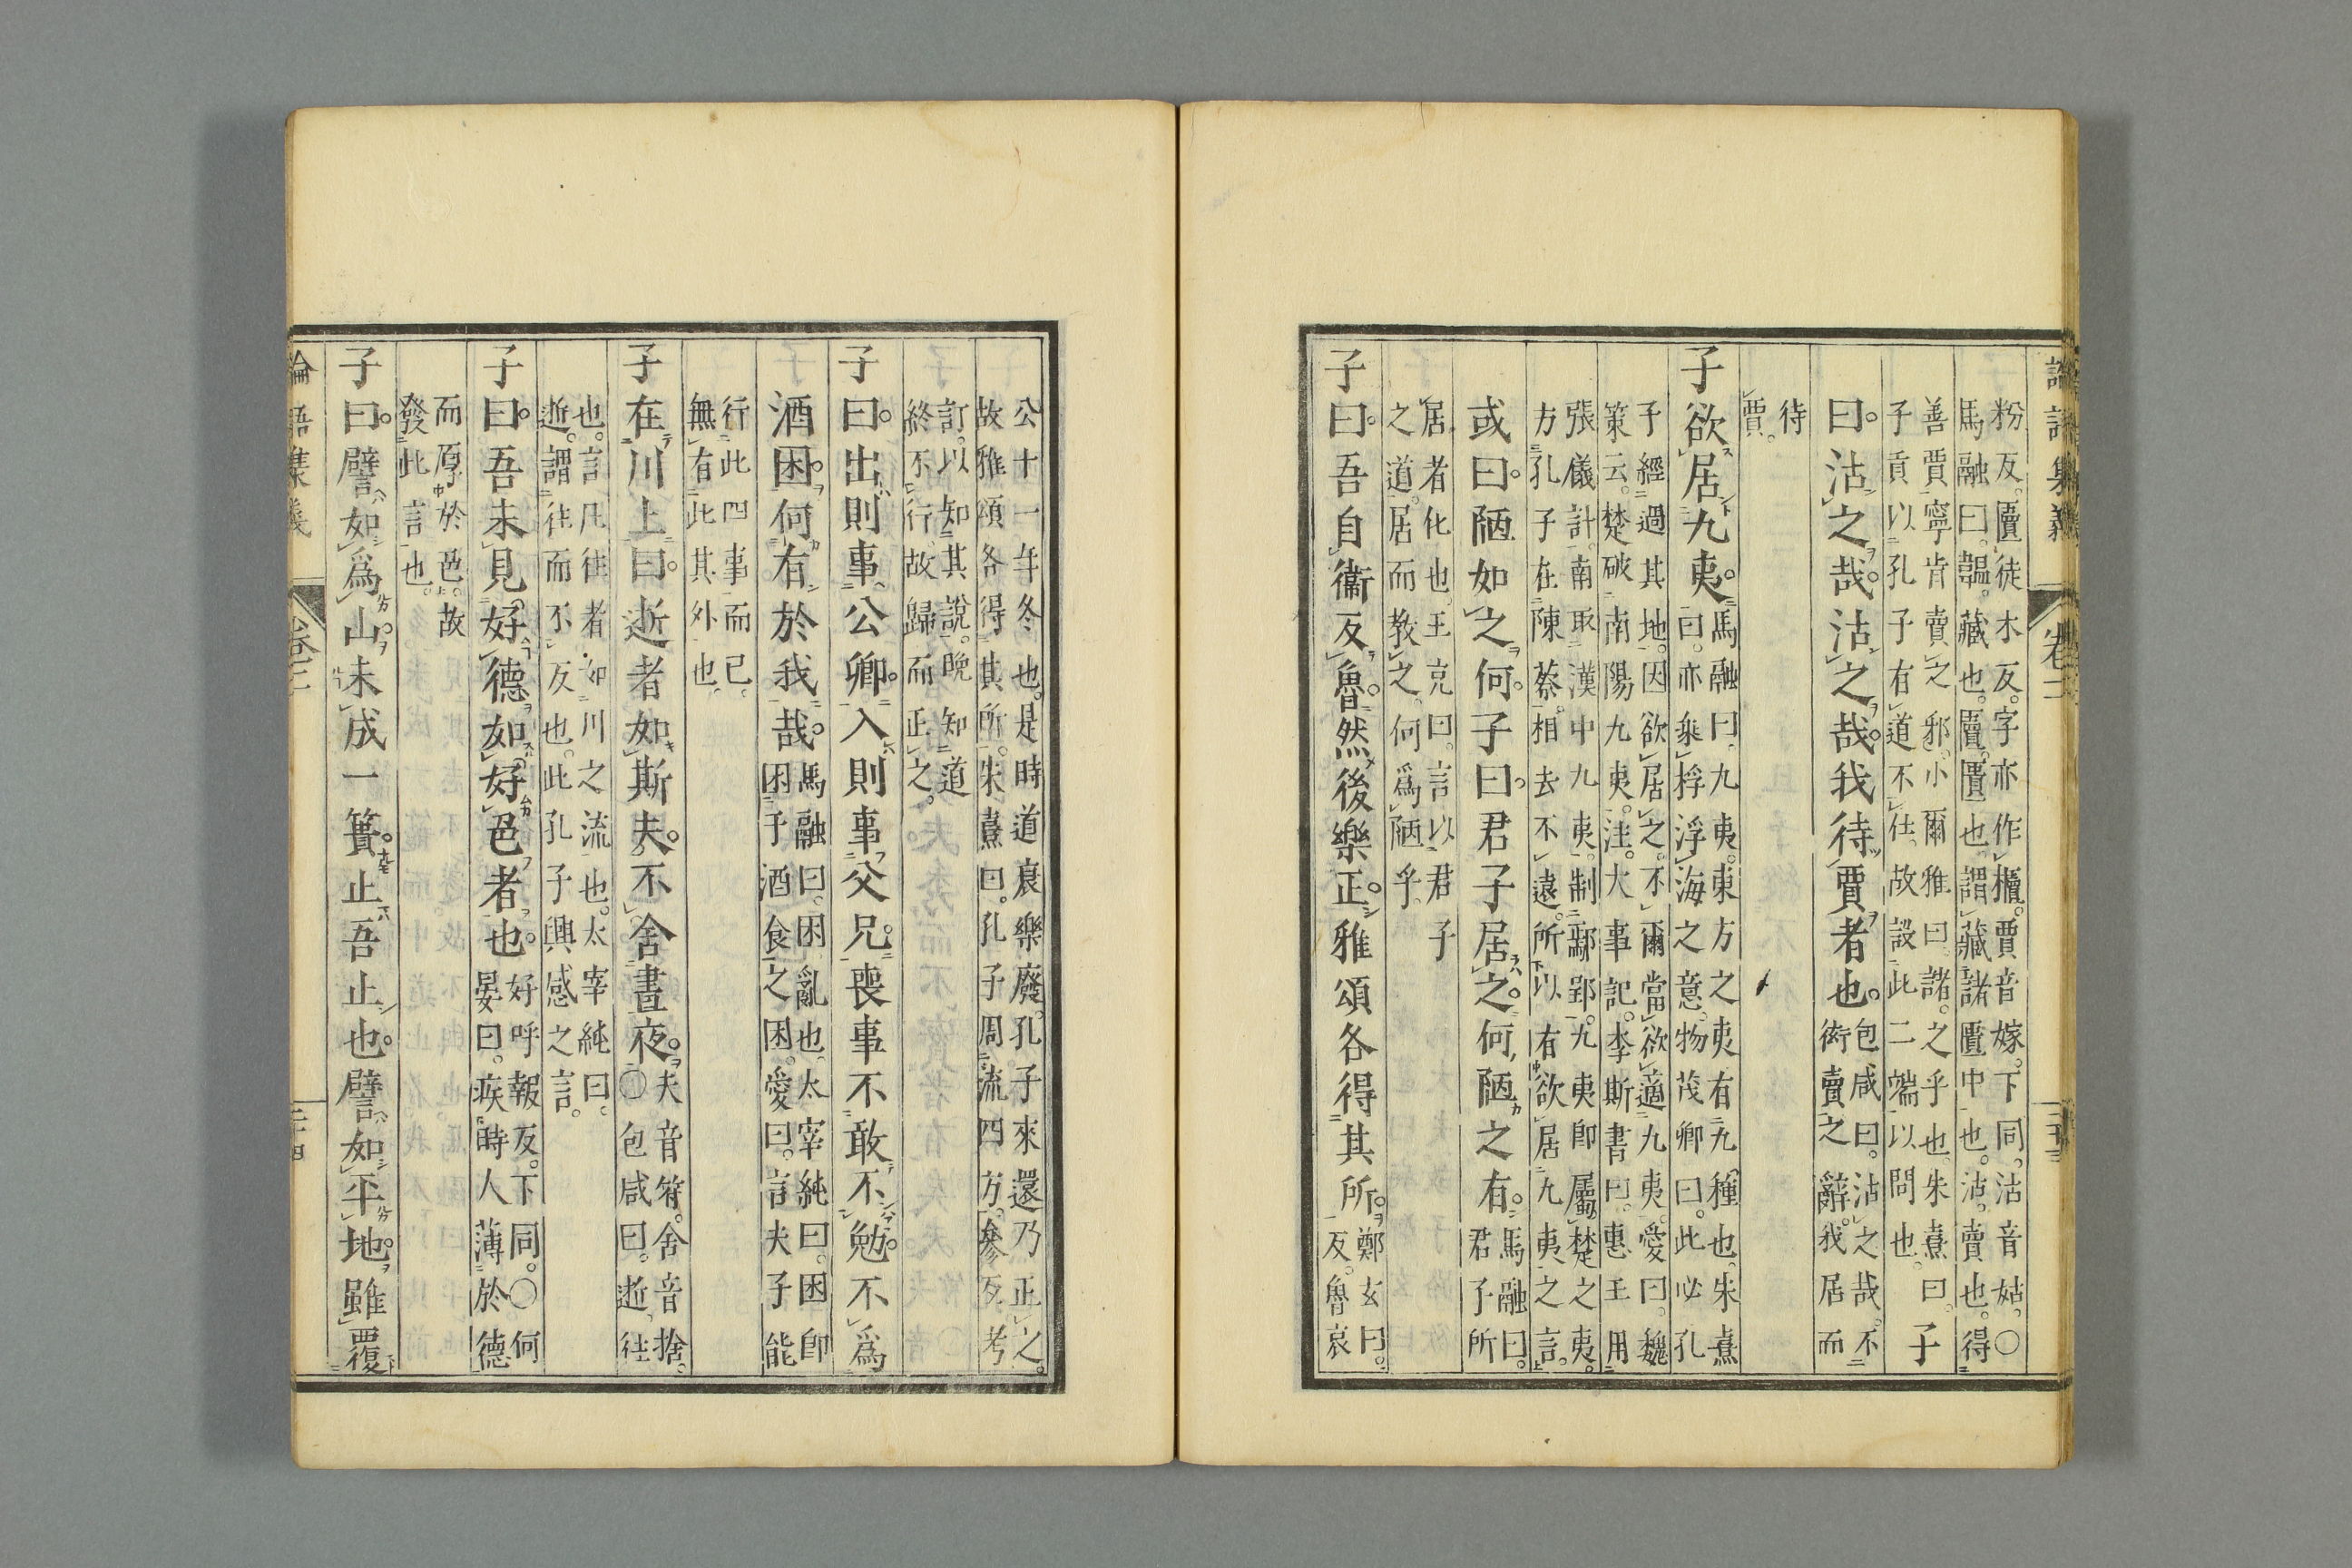 論語集義 卷三 二十三
粉反。匵徒木反。字亦作櫝。賈音嫁。下同。沽音姑。○
馬融曰。韞。藏也。匵。匱也。謂藏諸匱中也。沽。賣也。得
善賈寧肯賣之邪。小爾雅曰。諸。之乎也。朱熹曰。子
子貢以孔子有道不仕。故設此二端以問也。
曰。沽之哉。沽之哉。我待賈者也。
包咸曰。沽之哉。不
衒賣之辭。我居而
待
賈。
子欲居九夷。
馬融曰。九夷。東方之夷有九種也。朱熹
曰。亦乘桴浮海之意。物茂卿曰。此必孔
子經過其地。因欲居之。不爾當欲適九夷。愛曰。魏
策云。楚破南陽九夷。注。大事記。李斯書曰。惠王用
張儀計。南取漢中九夷。制鄢郢。九夷卽屬楚之夷。
方孔子在陳蔡。相去不遠。所以有欲居九夷之言。
或曰。陋如之何。子曰。君子居之。何陋之有。
馬融曰。
君子所
居者化也。王克曰。言以君子
之道。居而教之。何爲陋乎。
子曰。吾自衞反魯。然後樂正。雅頌各得其所。
鄭玄曰。
反。魯哀
公十一年冬也。是時道衰樂廢。孔子來還乃正之。
故雅頌各得其所。朱熹曰。孔子周流四方。參互考
訂。以知其說。晚知道
終不行。故歸而正之。
子曰。出則事公卿。入則事父兄。喪事不敢不勉。不爲
酒困。何有於我哉。
馬融曰。困。亂也。太宰純曰。困卽
困于酒食之困。愛曰。言夫子能
行此四事而已。
無有此其外也。
子在川上曰。逝者如斯夫。不舍晝夜。
夫音符。舍音捨。
○包咸曰。逝。往
也。言凡往者如川之流也。太宰純曰。
逝。謂往而不反也。此孔子興感之言。
子曰。吾未見好德如好色者也。
好呼報反。下同。○何
晏曰。疾時人薄於德
而厚於色。故
發此言也。
子曰。譬如爲山。未成一簣。止吾止也。譬如平地。雖覆
論語集義 卷三 二十四